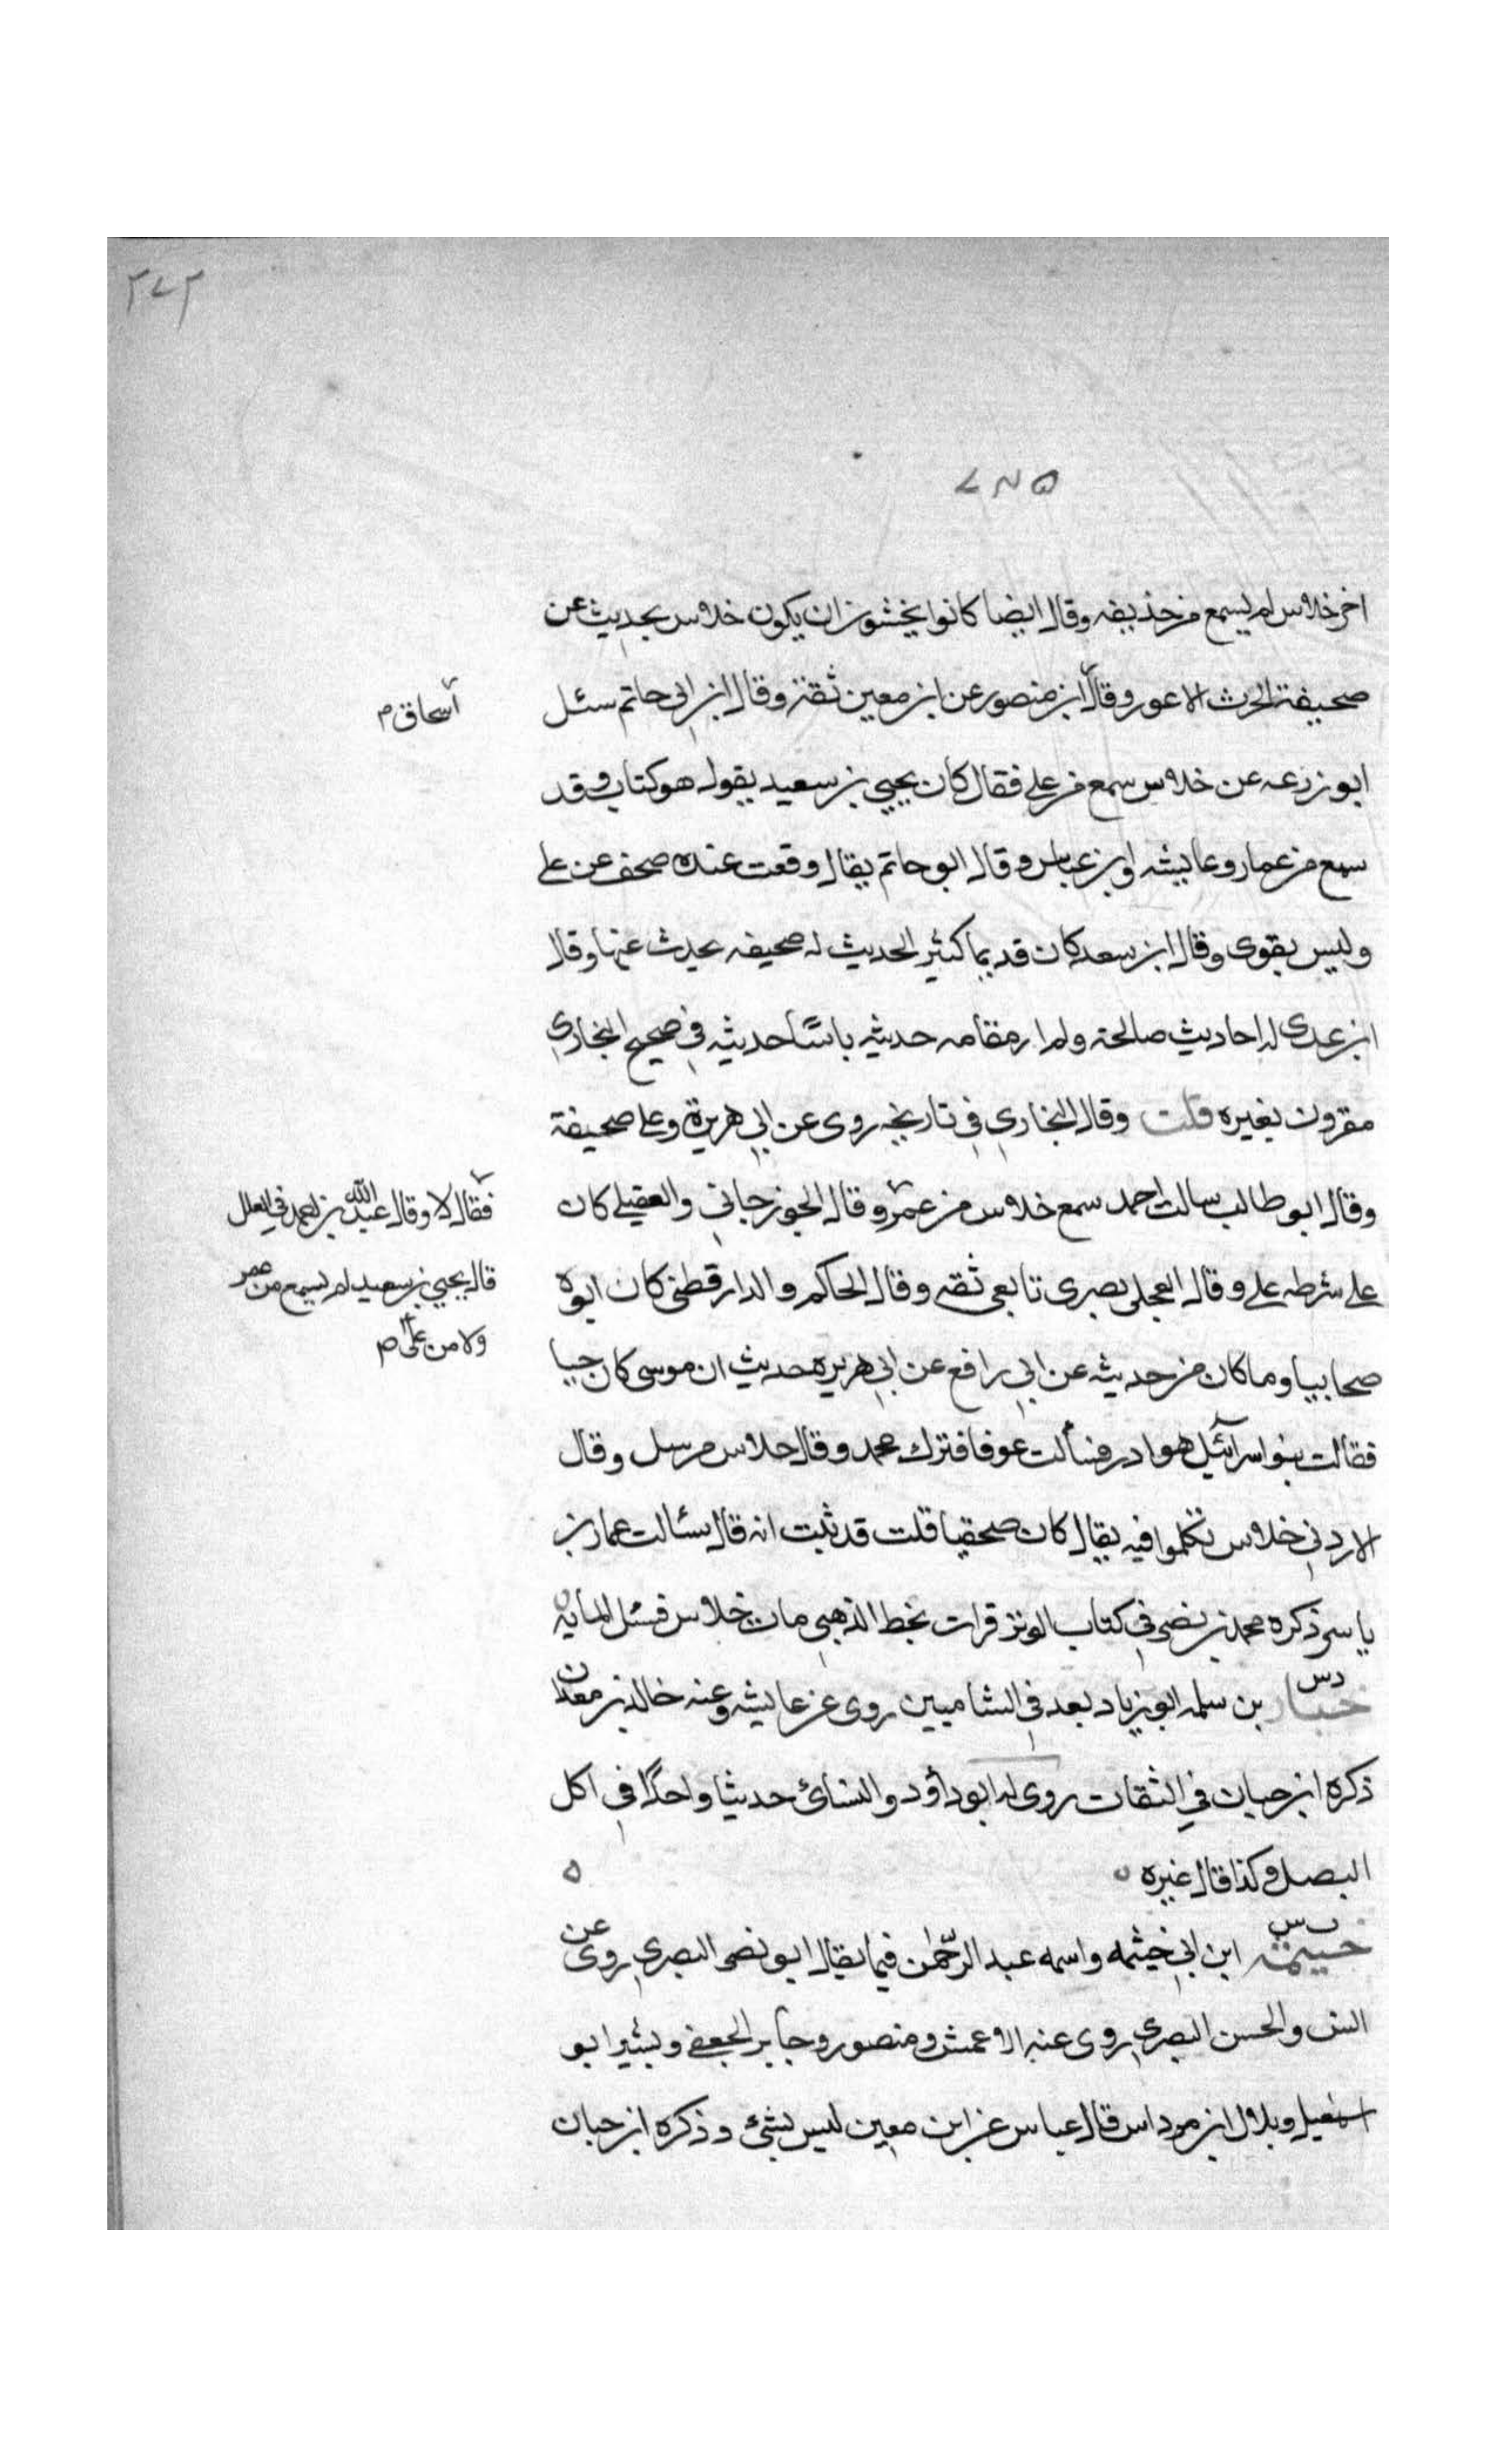 ٢٧٢
٧٤٥
اخر خلاس لم يسمع من حذيفه وقال ايضا كانوا يخشون ان يكون خلاس يحديث عن
صحيفة الحرث الاعور وقال ابن منصور عن ابن معين ثقة وقال ابن ابي حاتم سئل
اسحاق م
ابو زرعه عن خلاس سمع من علي فقال كان يحيي بن سعيد يقول هو كتاب وقد
سمع من عمار وعايشه وابن عباس وقال ابو حاتم يقال وقعت عنده صحف عن علي
وليس بقوى وقال ابن سعد كان قديما كثير الحديث له صحيفه يحدث عنها وقال
ابن عدى له احاديث صالحة ولم ار مقامه حديثه باسًا حديثه في صحيح البخاري
مقرون بغيره قلت وقال البخاري في تاريخه روى عن ابي هريرة وعلي صحيفة
وقال ابو طالب سالت احمد سمع خلاس من عمر وقال الجوزجاني والعقيلي كان
فقال لا وقال عبد الله بن احمد في العلل
على شرطه علي وقال العجلي بصرى تابعي ثقه وقال الحاكم والدارقطني كان ابوه
قال يحيي بن سعيد لم يسمع من عمر
ولا من علي م
صحابيا وما كان من حديثه عن ابي رافع عن ابي هريره حديث ان موسى كان حييا
فقالت بنو اسرآئيل هو ادر فسألت عوفا فترك محمد وقال خلاس مرسل وقال
الازدي خلاس تكلموا فيه يقال كان صحفيا قلت قد ثبت انه قال سئالت عمار بن
ياسر ذكره محمد بن نصر في كتاب الوتر قرات بخط الذهبي مات خلاس قبل المايه
دس
خيار بن سلمه ابو زياد بعد في الشاميين روى عن عايشه وعنه خالد بن معدان
ذكره ابن حبان في الثقات روى له ابو داؤد والنسائ حديثا واحدًا في اكل
البصل وكذا قال غيره
ت س
خيثمه ابن ابي خيثمه واسمه عبد الرحمن فيما يقال ابو نصر البصري روى عن
انس والحسن البصري روى عنه الاعمش ومنصور وجابر الجعفي وبشير ابو
اسمعيل وبلال ابن مرداس قال عباس عن ابن معين ليس بشئ وذكره ابن حبان